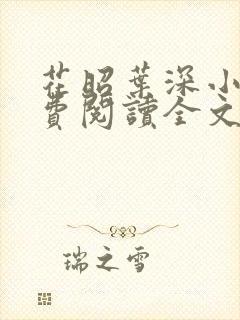 茌昭葉深小
費閱讀全文
瑞之雪